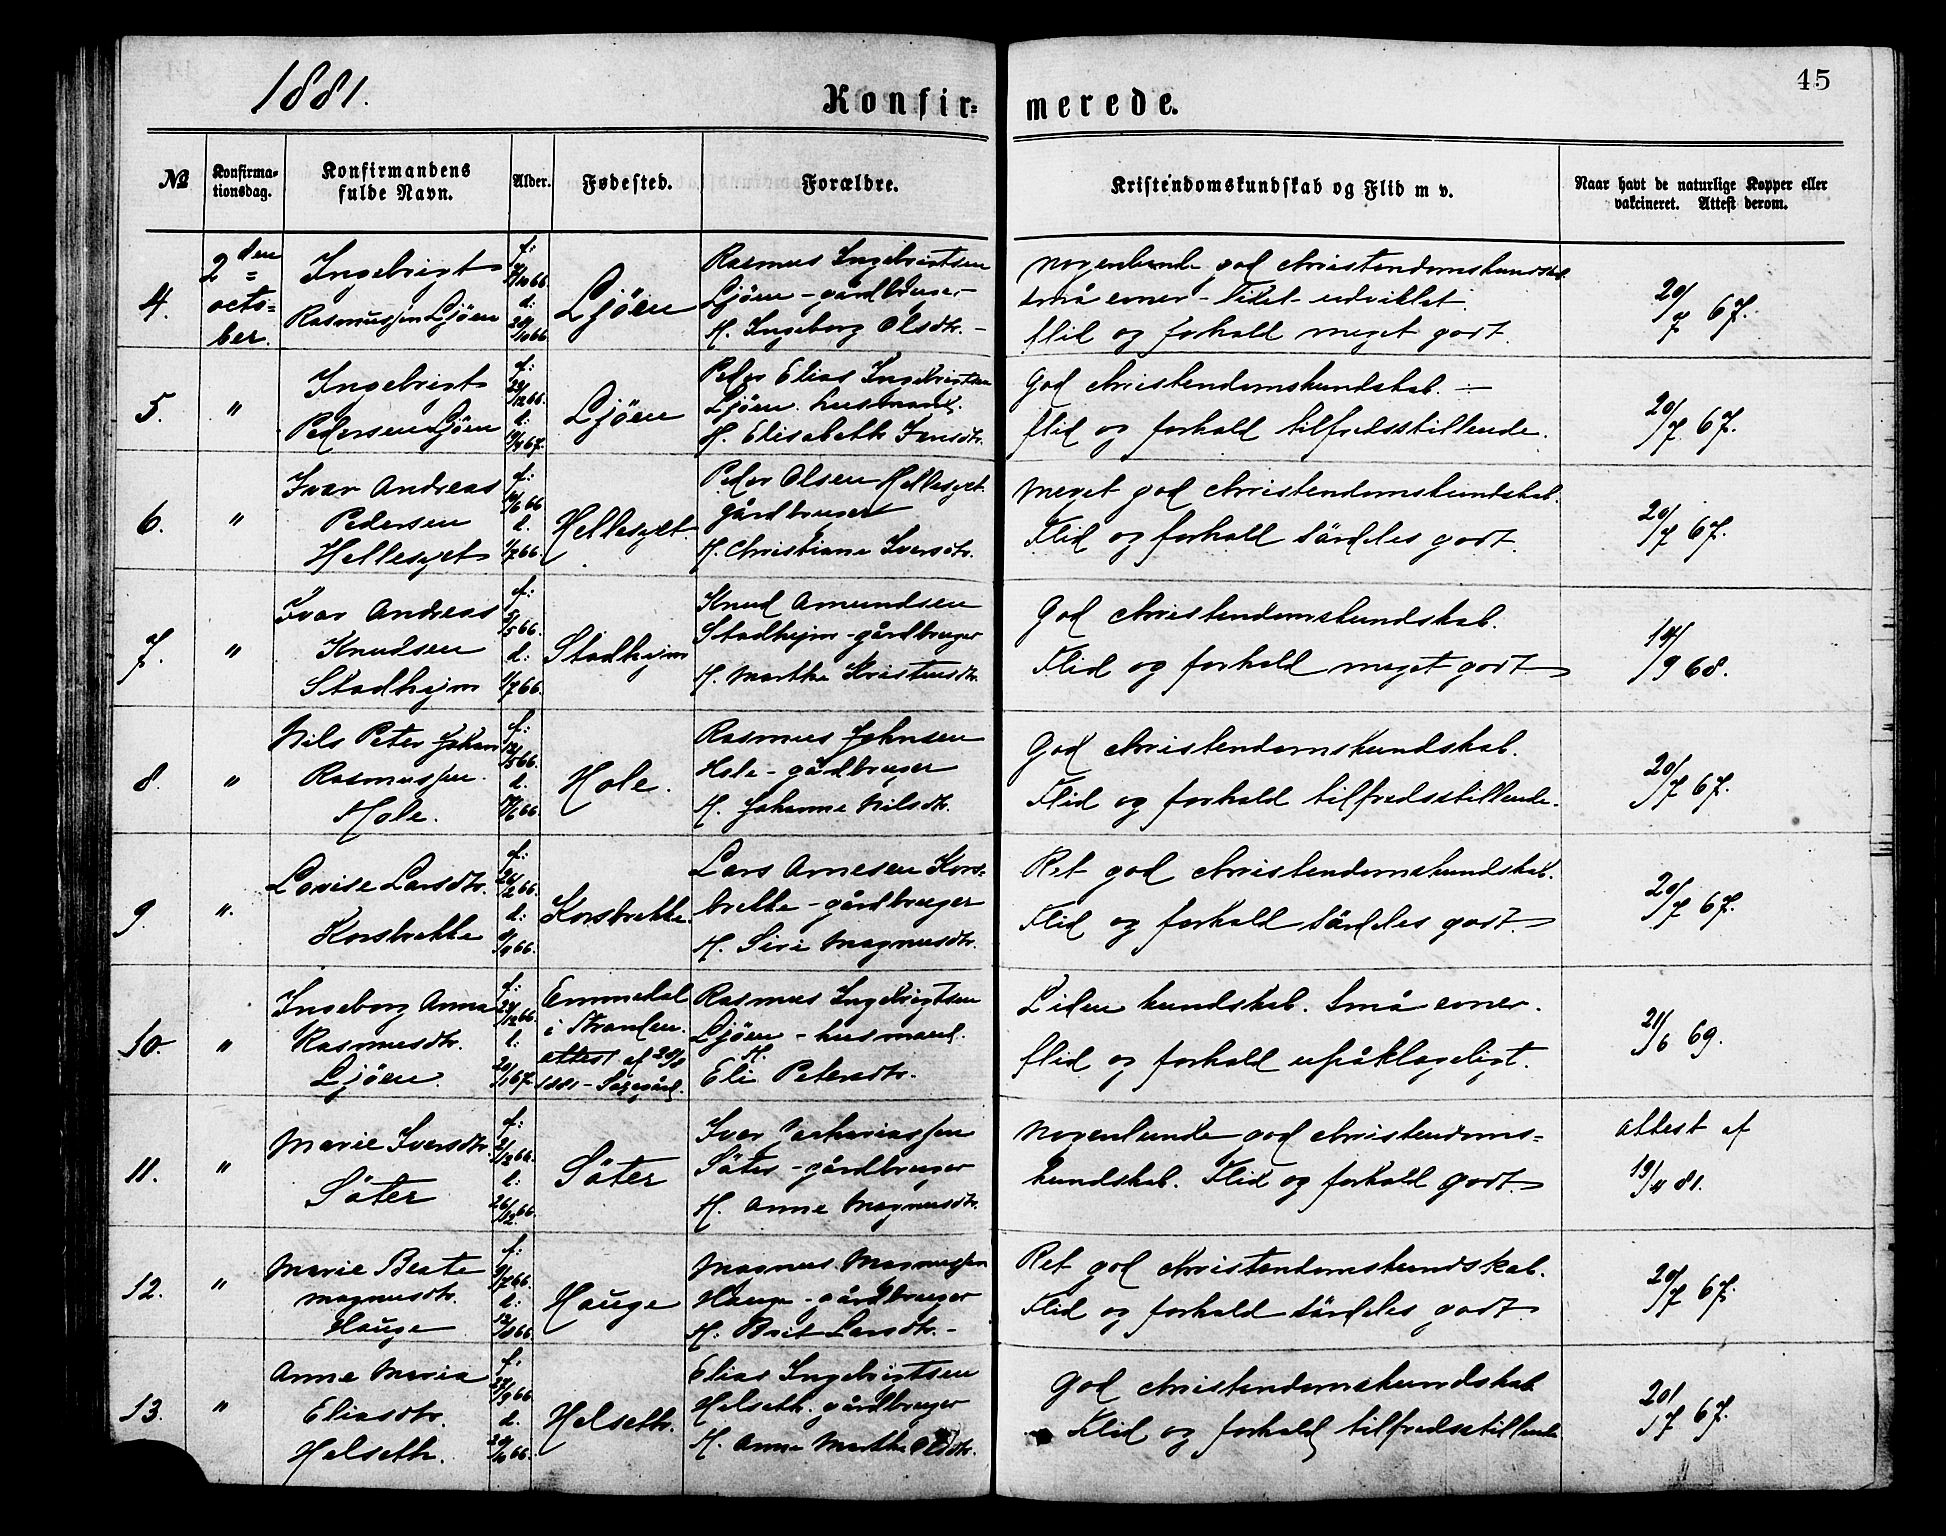 1881.
Konfir=
merede.
45
№
Konfirma=
tionsdag.
Konfirmandens
fulde Navn.
Alder.
Fødested.
Forældre.
Kristendomskundskab og Flid m v.
Naar havt de naturlige Kopper eller
vakcineret. Attest derom.
4.
2den
octo=
ber.
Ingebrigt
Rasmussen Ljöen
f:
d:
Ljöen
Rasmus Ingebrigtsen
Ljöen - gårdbruger
H. Ingeborg Olsdtr. -
nogenlunde god christendomskundskab
små evner - lidet udviklet.
flid og forhold meget godt.
20/7 67.
5.
"
Ingebrigt
Pedersen Ljöen
f:
23/12 66.
d:
Ljöen
Peder Elias Ingebrigtsen
Ljöen. husmand.
H. Elisabeth Jensdtr.
God christendomskundskab. -
flid og forhold tilfredsstillende.
20/7 67.
6.
"
Ivar Andreas
Pedersen
Hellesyet
f:
d.
1/7 66.
Hellesyet.
Peder Olsen Hellesyet.
gårdbruger
H. Christiane Iversdtr.
Meget god christendomskundskab.
Flid og forhold särdeles godt.
20/7 67.
7.
"
Ivar Andreas
Knudsen
Stadhejm
f:
5/5 66.
d:
1/7 66.
Stadhejm
Knud Amundsen
Stadhejm - gårdbruger
H. Marthe Kristensdtr.
God christendomskundskab.
Flid og forhold meget godt
14/9 68.
8.
"
Nils Peter Johan
Rasmussen.
Hole.
f:
12/5 66.
d.
Hole.
Rasmus Johnsen
Hole - gårdbruger
H. Johanne Nilsdtr.
God christendomskundskab.
Flid og forhold tilfredsstillende.
20/7 67.
9.
".
Lovise Larsdtr.
Korsbrekke
f:
26/2 66.
d:
Korsbrekke.
Lars Arnesen Kors=
brekke - gårdbruger
H. Siri Magnusdtr.
Ret god christendomskundskab.
Flid og forhold särdeles godt.
20/7 67.
10.
"
Ingeborg Anna
Rasmusdtr.
Ljöen.
f:
27/12 66.
d:
20/1 67.
Emmedal
i Stranden.
attest af 20/8
1881 - Södegård.
Rasmus Ingebrigtsen
Ljöen - husmand.
H.
Eli Petersdtr.
Liden kundskab. Små evner.
flid og forhold upåklageligt.
21/6 69.
11.
"
Marie Iversdtr.
Säter
f:
2/12 66.
d.
26/12 66.
Säter
Iver Zachariassen
Säter - gårdbruger
H. Anne Magnusdtr.
Nogenlunde god christendoms=
kundskab. Flid og forhold godt.
attest af
19/4 81.
12.
"
Marie Beate
Magnusdtr.
Hauge
f:
9/7 66.
d:
12/8 66
Hauge
Magnus Magnussen
Hauge - gårdbruger
H. Brit Larsdtr. -
Ret god christendomskundskab.
Flid og forhold särdeles godt.
20/7 67.
13.
"
Anne Maria
Eliasdtr.
Helseth.
f:
27/9 66
d.
Helseth.
Elias Ingebrigtsen
Helseth. gårdbruger
H. Anne Marthe Olsdtr.
God christendomskundskab
Flid og forhold tilfredsstillende
20/7 67.